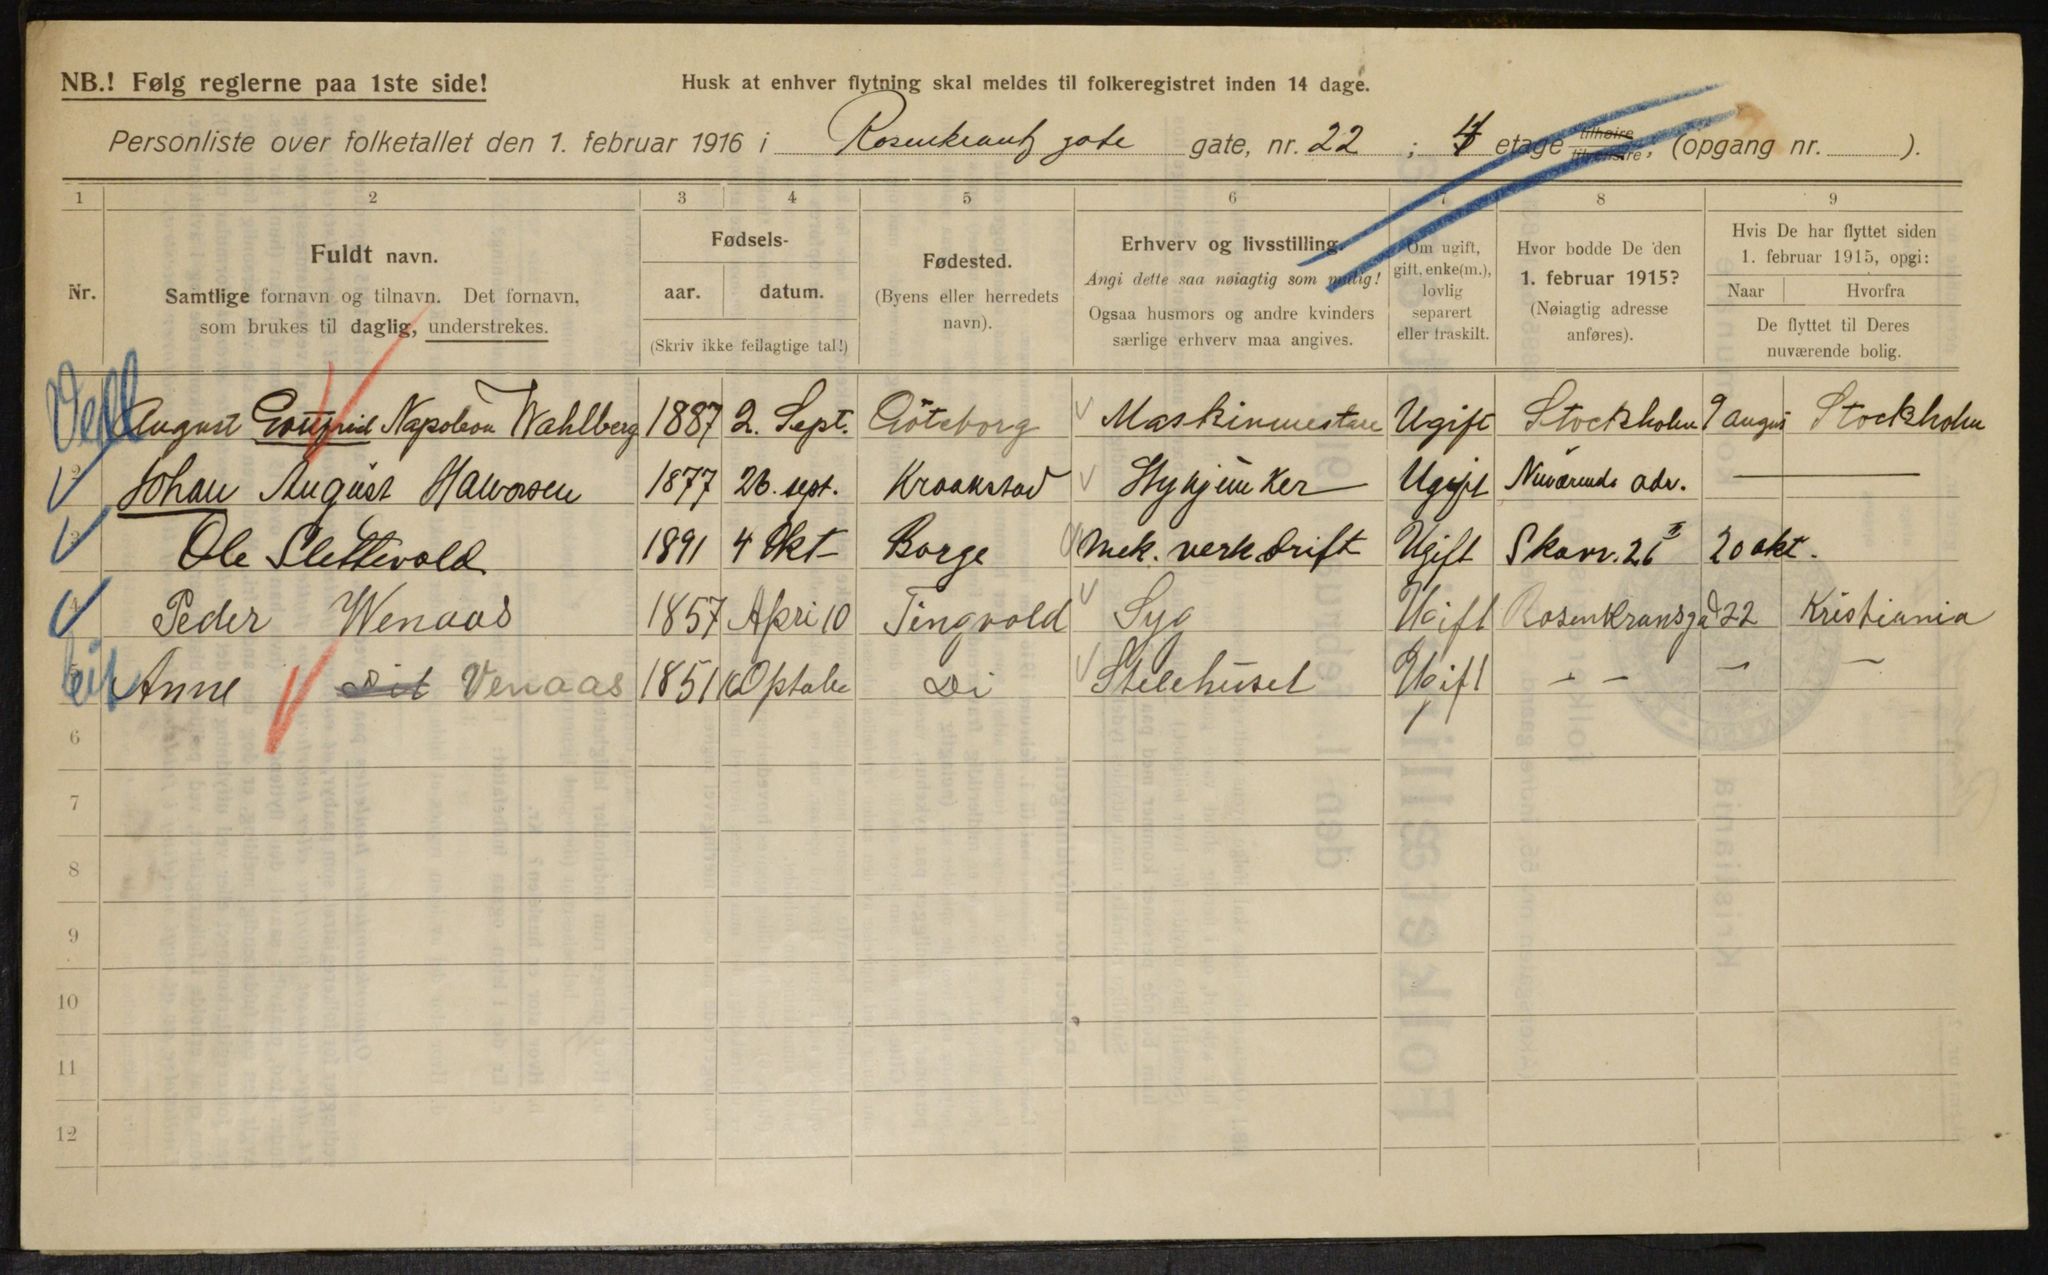 NB.! Følg reglerne paa 1ste side!
Husk at enhver flytning skal meldes til folkeregistret inden 14 dage.
Personliste over folketallet den 1. februar 1916 i Rosenkrantz gate gate, nr. 22 ; 4 etage tilhøire tilvenstre; (opgang nr. ).
1 2 3 4 5 6 7 8 9
Nr.
Fuldt navn.
Samtlige fornavn og tilnavn. Det fornavn,
som brukes til daglig, understrekes.
Fødsels-
aar. datum.
(Skriv ikke feilagtige tal!)
Fødested.
(Byens eller herredets
navn).
Erhverv og livsstilling.
Angi dette saa nøiagtig som mulig!
Ogsaa husmors og andre kvinders
særlige erhverv maa angives.
Om ugift,
gift, enke(m.),
lovlig
separert
eller fraskilt.
Hvor bodde De den
1. februar 1915?
(Nøiagtig adresse
anføres).
Hvis De har flyttet siden
1. februar 1915, opgi:
Naar Hvorfra
De flyttet til Deres
nuværende bolig.
August Gottfrid Napoleon Wahlberg 1887 2. Sept. Göteborg Maskinmestare Ugift Stockholm 9 augus Stockholm
2 Johan August Halvorsen 1877 26. sept. Kraakstad Ugift Nuværende adr. —
3 Ole Slettevold 1891 4 Okt Borge Mek. verk.drift Ugift Skovv. 26 II 20 okt.
4 Peder Wenaas 1857 Apri 10 Tingvold Syg Ugift Rosenkransgd 22 Kristiania
5 Anne Dit Venaas 1851 Di Stelehuset Ugift - - - -
6
7
8
9
10
11
12